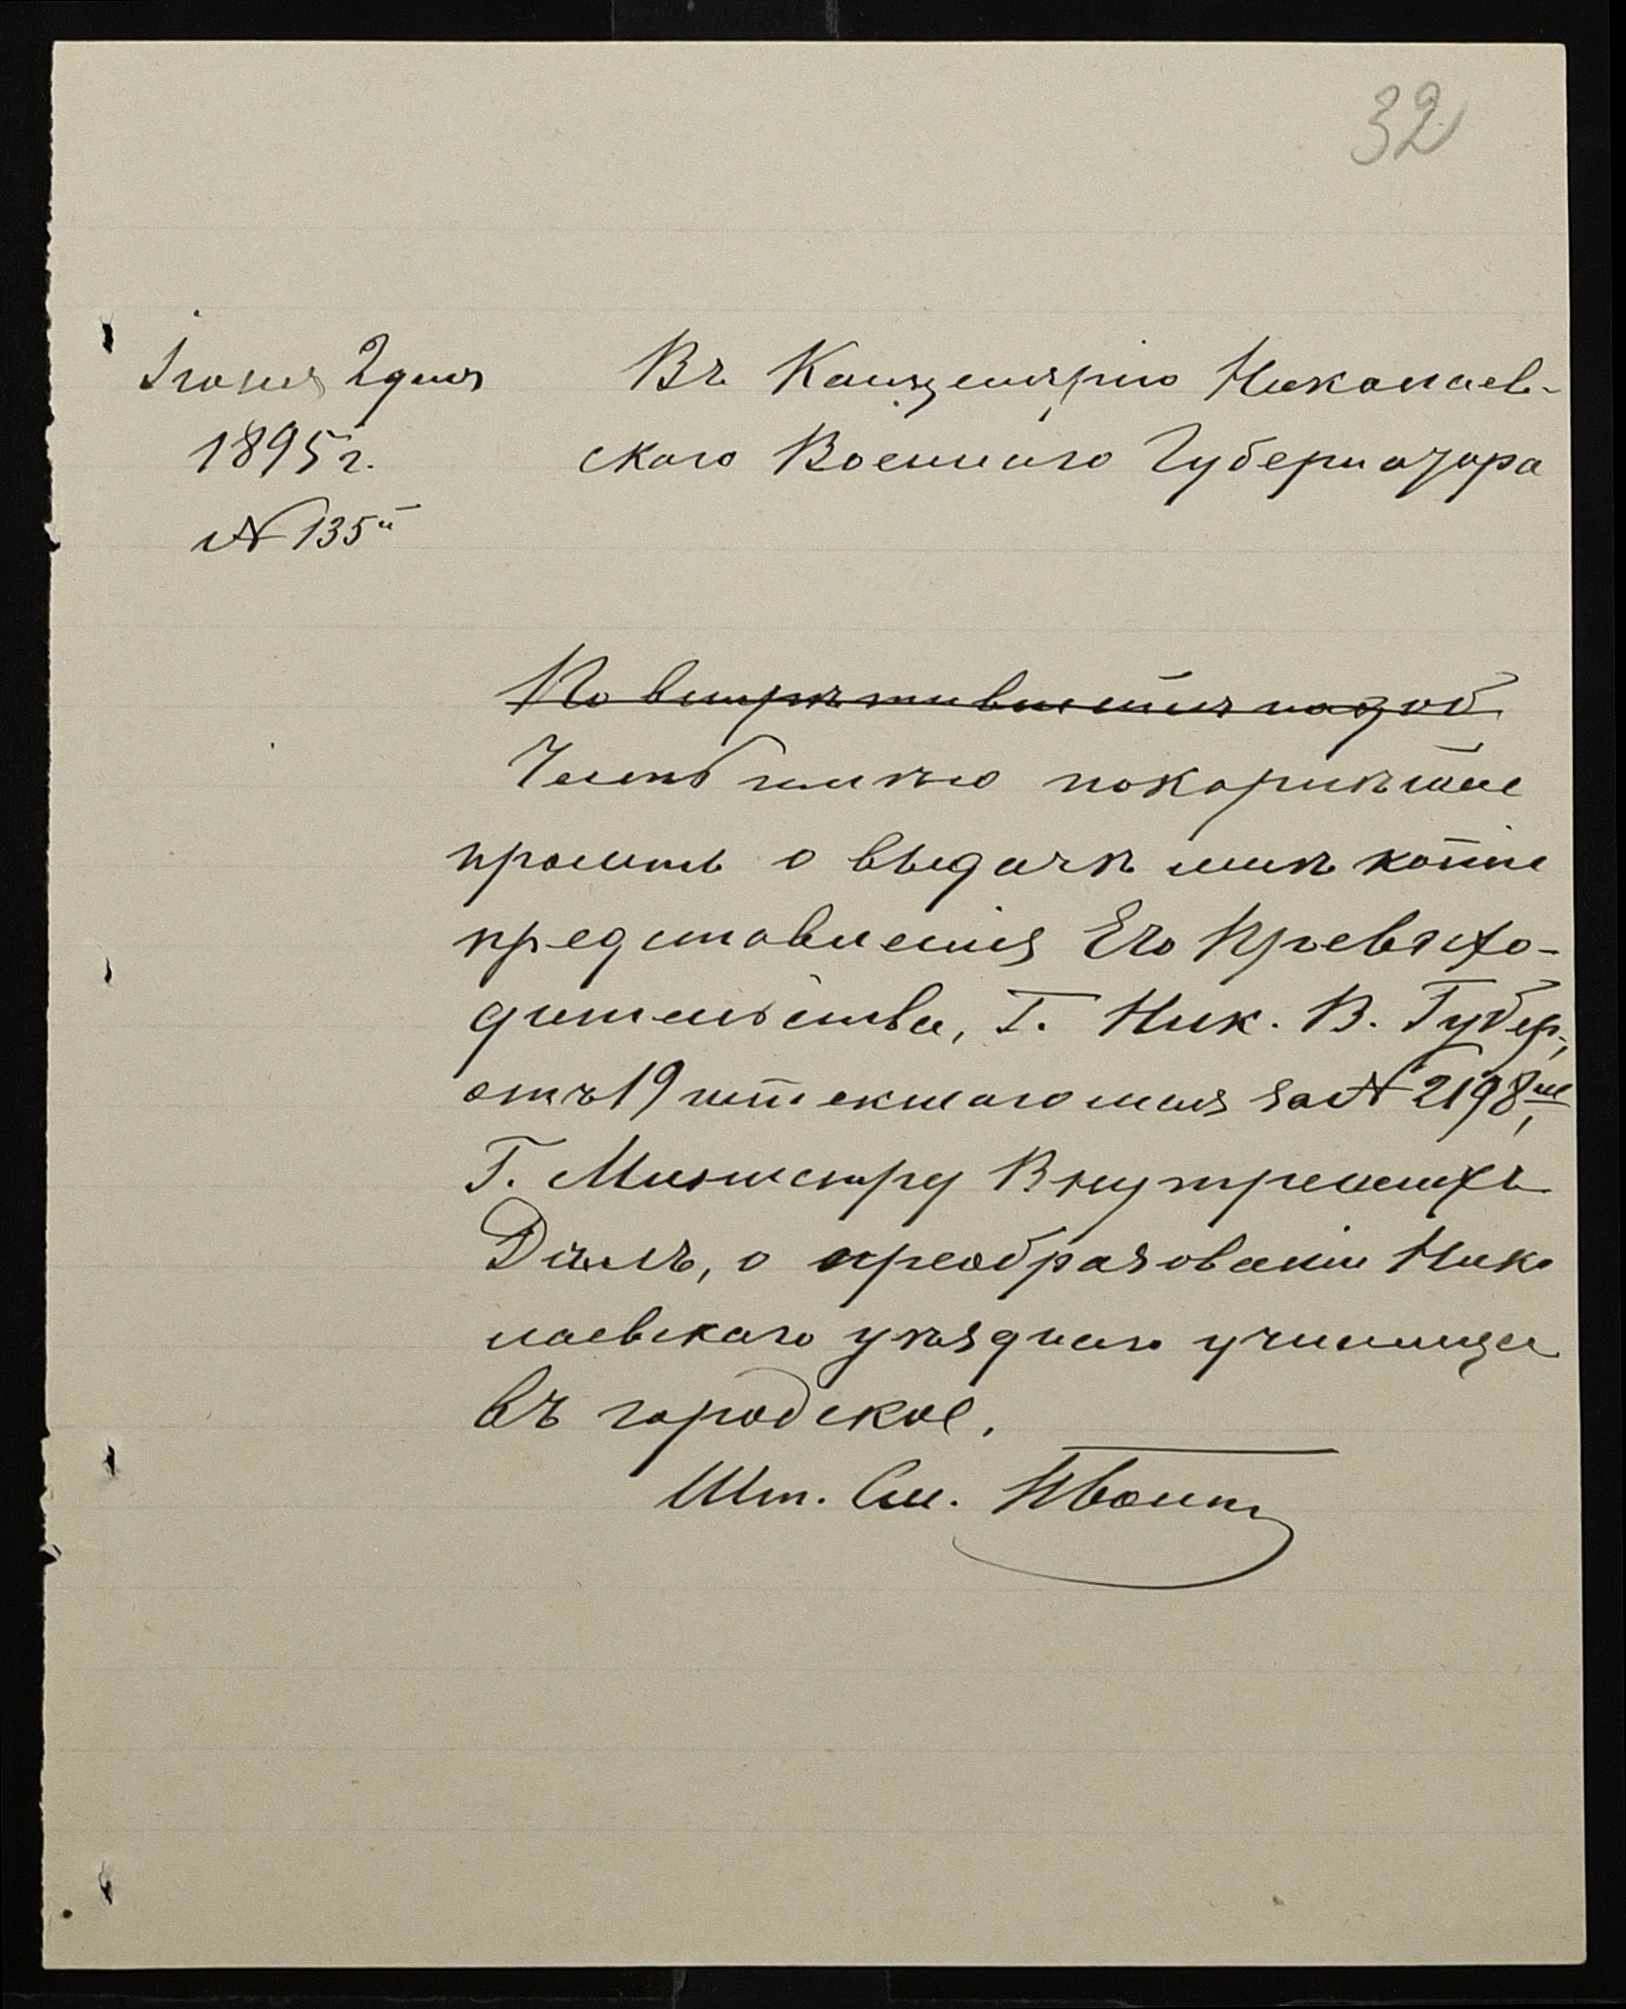 32
Іюня 2 дня
1895 г.
№ 135й
Въ Канцелярію Николаев-
скаго Военнаго Губернатора
По встрѣтившейся надоб
Честь имѣю покорнѣйше
просить о выдачѣ мнѣ копіи
представленія Его Превосхо-
дительства, Г. Ник. В. Губер.,
отъ 19 истекшаго мая за № 2198м,
Г. Министру Внутреннихъ
Дѣлъ, о преобразованіи Нико
лаевскаго уѣзднаго училища
въ городское.
Шт. См.